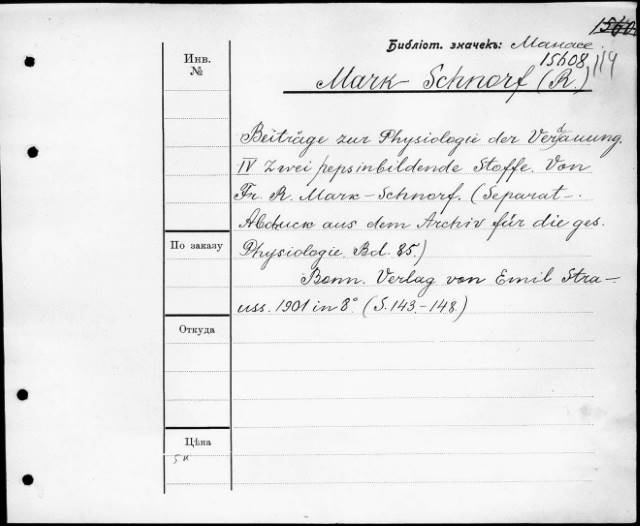 1560
Библіот. значекъ:Манасе
15608/119
Инв.
№
Mark-Schnorf (R.)
Beiträge zur Physiologie der Verdauung.
IV Zwei pepsinbildende Stoffe. Von
Fr. R. Mark-Schnorf. (Separat-
Abduck aus dem Archiv für die ges.
По заказу
Physiologie. Bd. 85.)
Bonn. Verlag von Emil Stra-
uss. 1901 in 8° (S. 143.-148.)
Откуда
Цѣна
5к